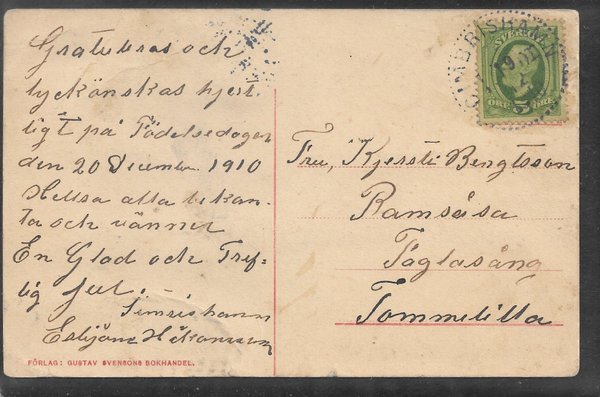 Gratuleras och
lyckönskas hjert
ligt på Födelsedagen
den 20 December 1910
Hellsa alla bekan-
ta och vänner
En Glad och Tref-
lig Jul.
Simrishamn
Håkansson
FÖRLAG: GUSTAV SVENSONS BOKHANDEL.
SVERIGE
ÖRE 5 ÖRE
CIMBRISHAMN
Fru, Kjersti Bengtsson
Ramsåsa
Fåglasång
Tommelilla